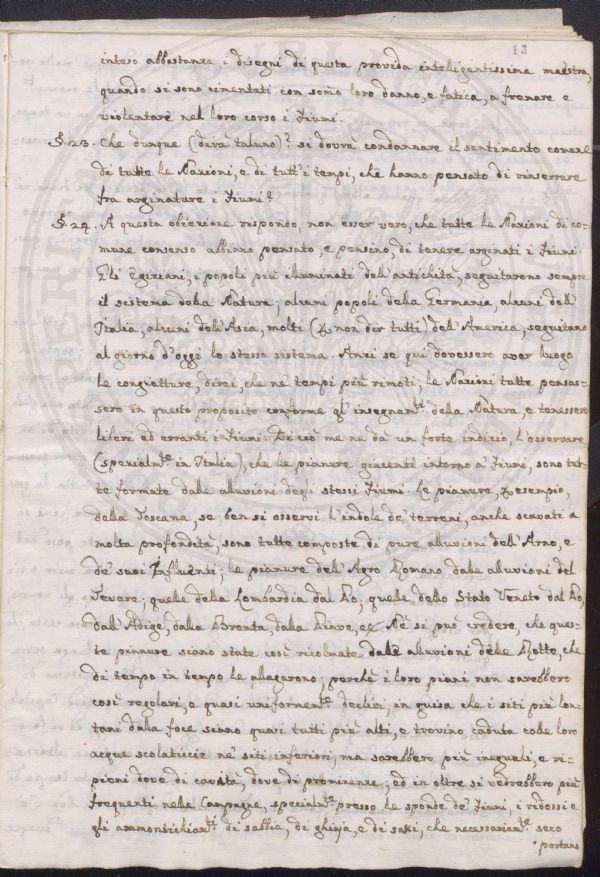 13
inteso abbastanza i disegni di questa provida intelligentissima maestra,
quando si sono cimentati con som̃o loro danno, e fatica, a frenare e
violentare nel loro corso i Fiumi.
§. 23. Che dunque (dirà taluno)? si dovrà condannare il sentimento comune
di tutte le Nazioni, e di tutt'i tempi, che hanno pensato di rinserrare
fra arginature i Fiumi?
§. 24. A questa obiezione rispondo, non esser vero, che tutte le Nazioni di co-
mune consenso abbiano pensato, e pensino, di tenere arginati i Fiumi.
Gli Egiziani, i popoli più illuminati dell'antichità, seguitarono sempre
il sistema della Natura; alcuni popoli della Germania, alcuni dell'
Italia, alcuni dell'Asia, molti (p non dir tutti) dell'America, seguitano
al giorno d'oggi lo stesso sistema. Anzi se qui dovessero aver luogo
le congietture, direi, che ne' tempi più rimoti, le Nazioni tutte pensas-
sero in questo proposito conforme gl'insegnam.ti della Natura, e tenessero
liberi ed erranti i Fiumi. Di ciò me ne dà un forte indizio, l'osservare
(specialm.te in Italia), che le pianure giacenti intorno a' Fiumi, sono tut-
te formate dalle alluvioni degli stessi Fiumi. Le pianure, p esempio,
della Toscana, se ben si osservi l'indole de' terreni, anche scavati a
molta profondità, sono tutte composte di pure alluvioni dell'Arno, e
de' suoi Influenti; le pianure dell'Agro Romano dalle alluvioni del
Tevere; quelle della Lombardia dal Po; quelle dello Stato Veneto dal Po,
dall'Adige, dalla Brenta, dalla Piave, e Nè si può credere, che ques-
te pianure siano state così ricolmate dalle alluvioni delle Rotte, che
di tempo in tempo le allagarono, perchè i loro piani non sarebbero
così regolari, e quasi uniformem.te declivi, in guisa che i siti più lon-
tani dalla foce siano quasi tutti più alti, e trovino caduta colle loro
acque scolatizie ne' siti inferiori; ma sarebbero più ineguali, e ri-
pieni dove di cavità, dove di prominenze; ed in oltre si vedrebbero più
frequenti nelle Campagne, specialm.te presso le sponde de' Fiumi, i ridossi e
gli ammonticchiam.ti di sabbia, di ghiaja, e di sassi, che necessariam.te seco
portano